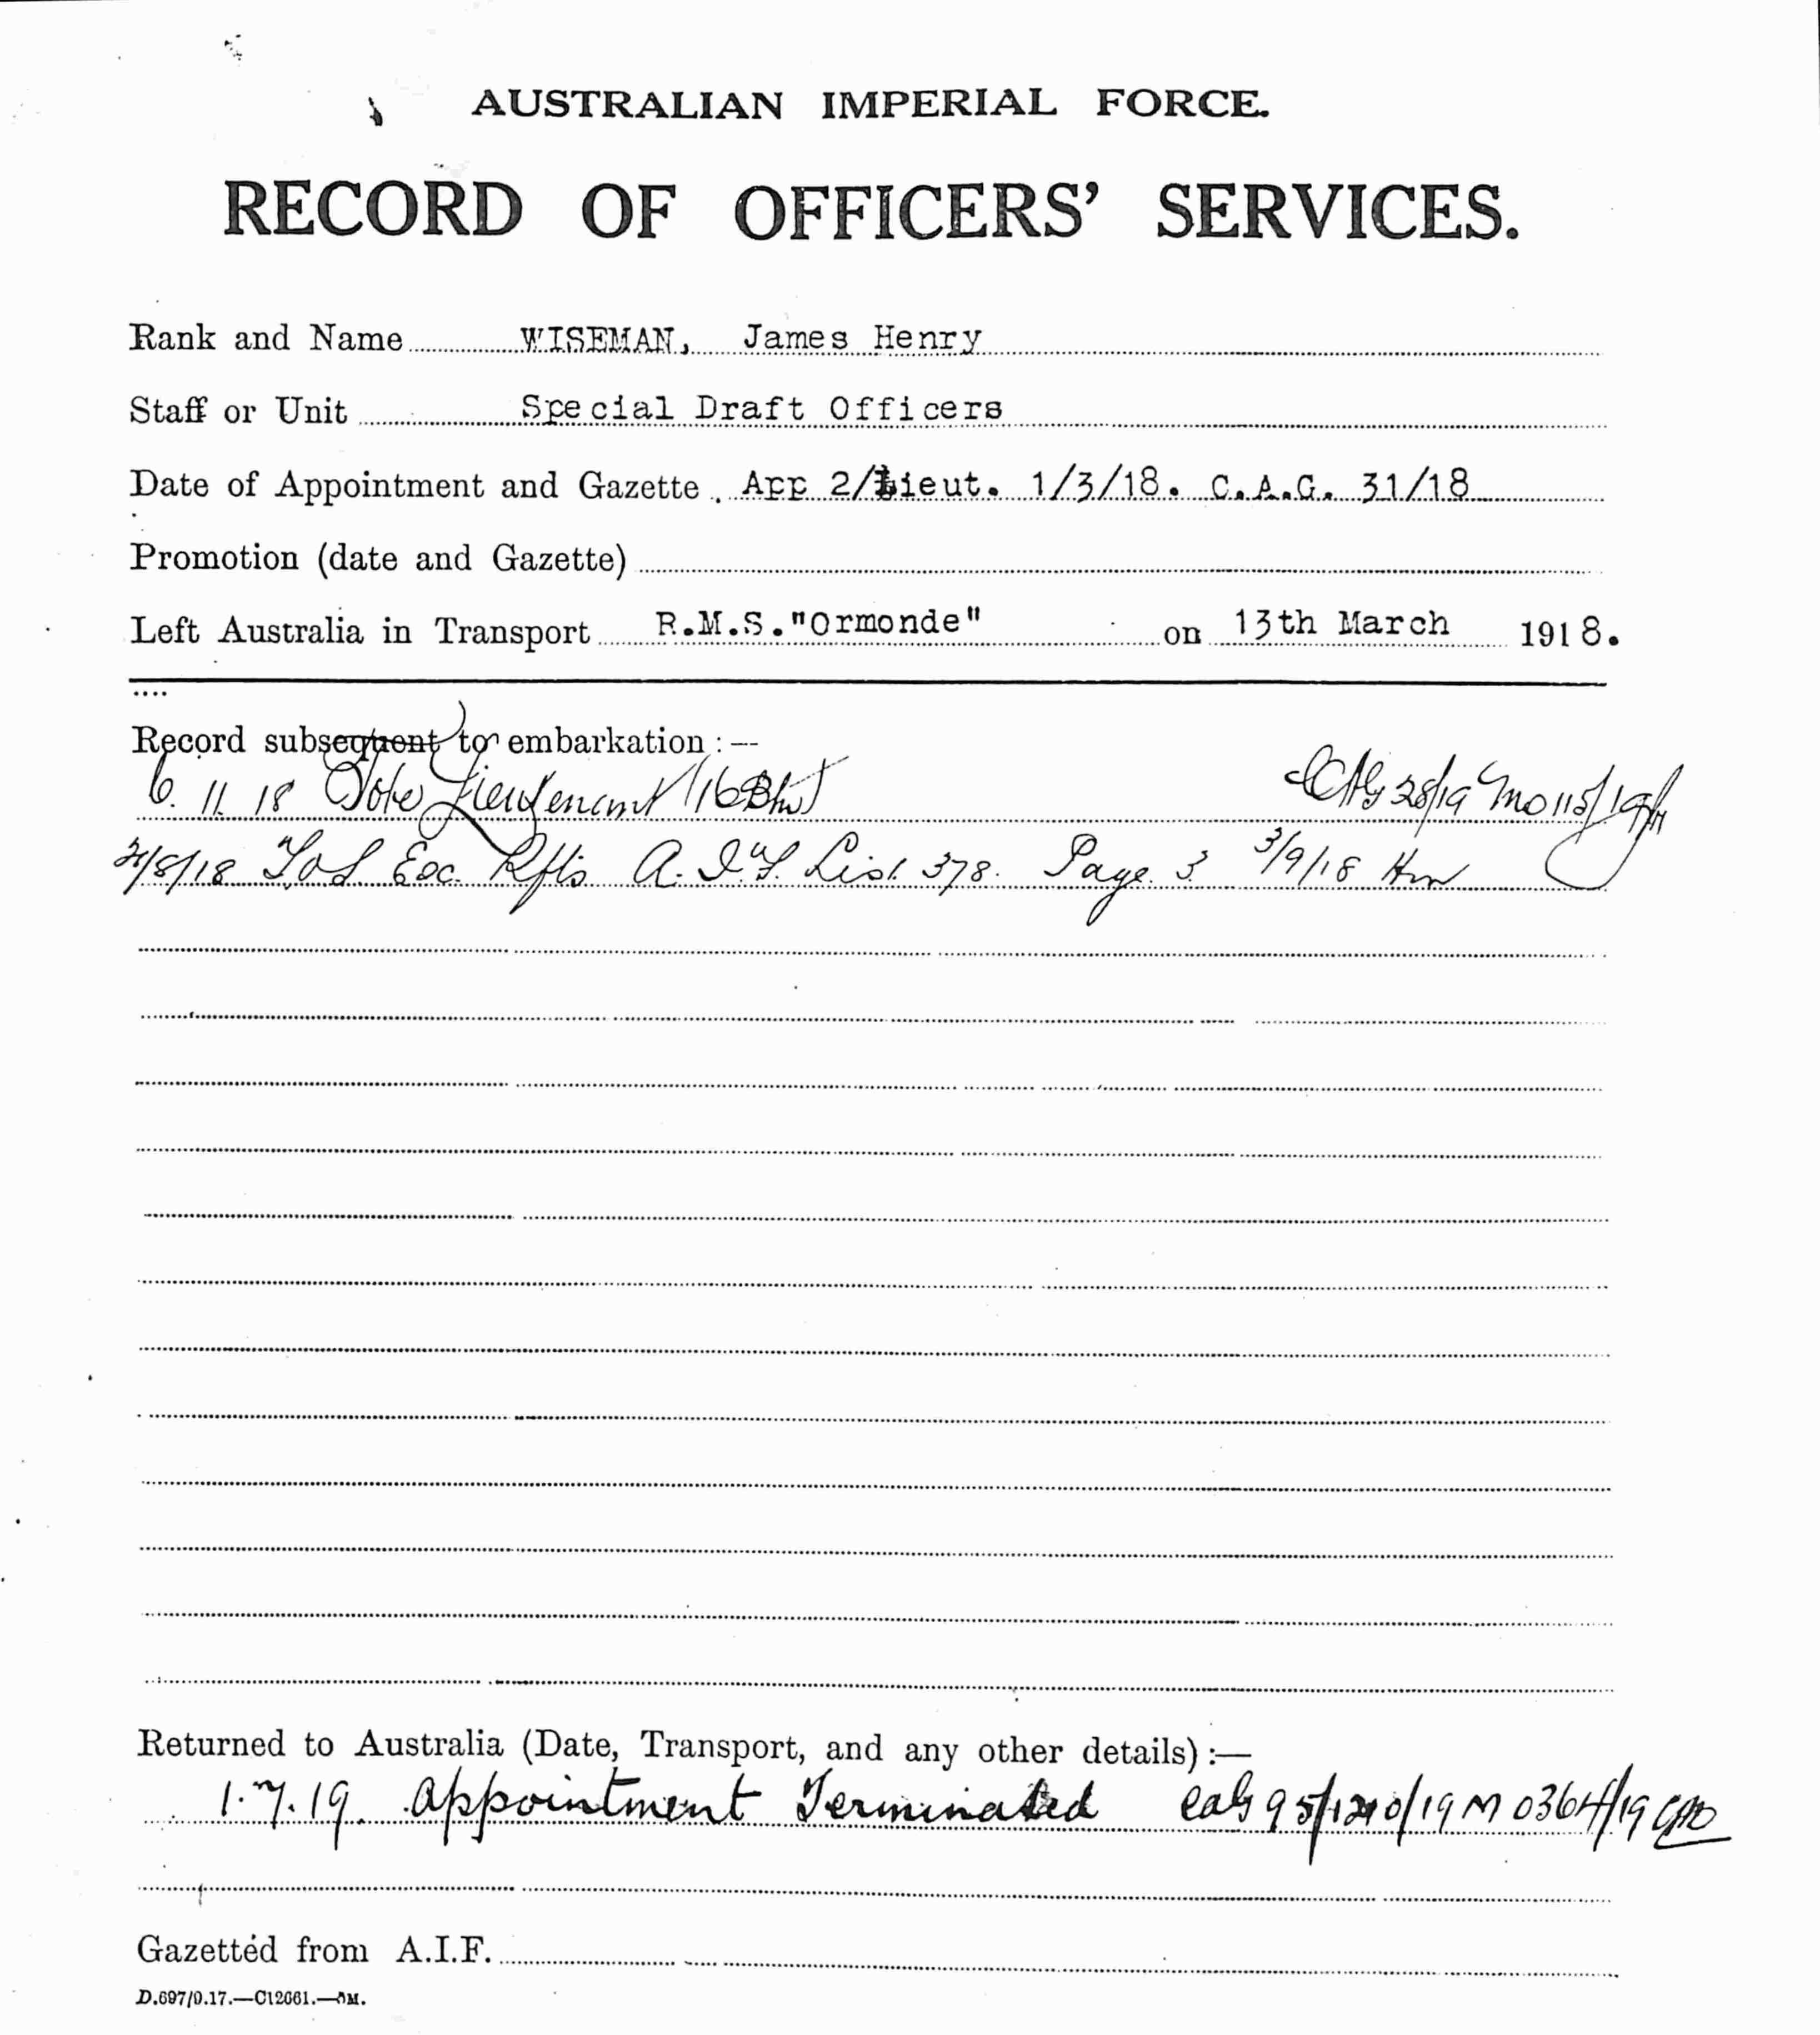 AUSTRALIAN IMPERIAL FORCE.
RECORD OF OFFICERS' SERVICES.
Rank and Name WISEMAN, James Henry
Staff or Unit Special Draft Officers
Date of Appointment and Gazette App 2/Lieut. 1/3/18. C.A.G. 31/18
Promotion (date and Gazette)
Left Australia in Transport R.M.S."Ormonde" on 13th March 1918.
Record subsequent to embarkation :—
6. 11 18 Tobe Lieutenant (16 Btn) CAG 28/19 MO 115/19
/8/18 T.O.S. Rfts A.I.F. List 378. Page 3 3/9/18
Returned to Australia (Date, Transport, and any other details) :—
1.7.19. Appointment Terminated CAG 95/ /19 MO 364/19
Gazetted from A.I.F.
D.697/9.17.—C12661.—